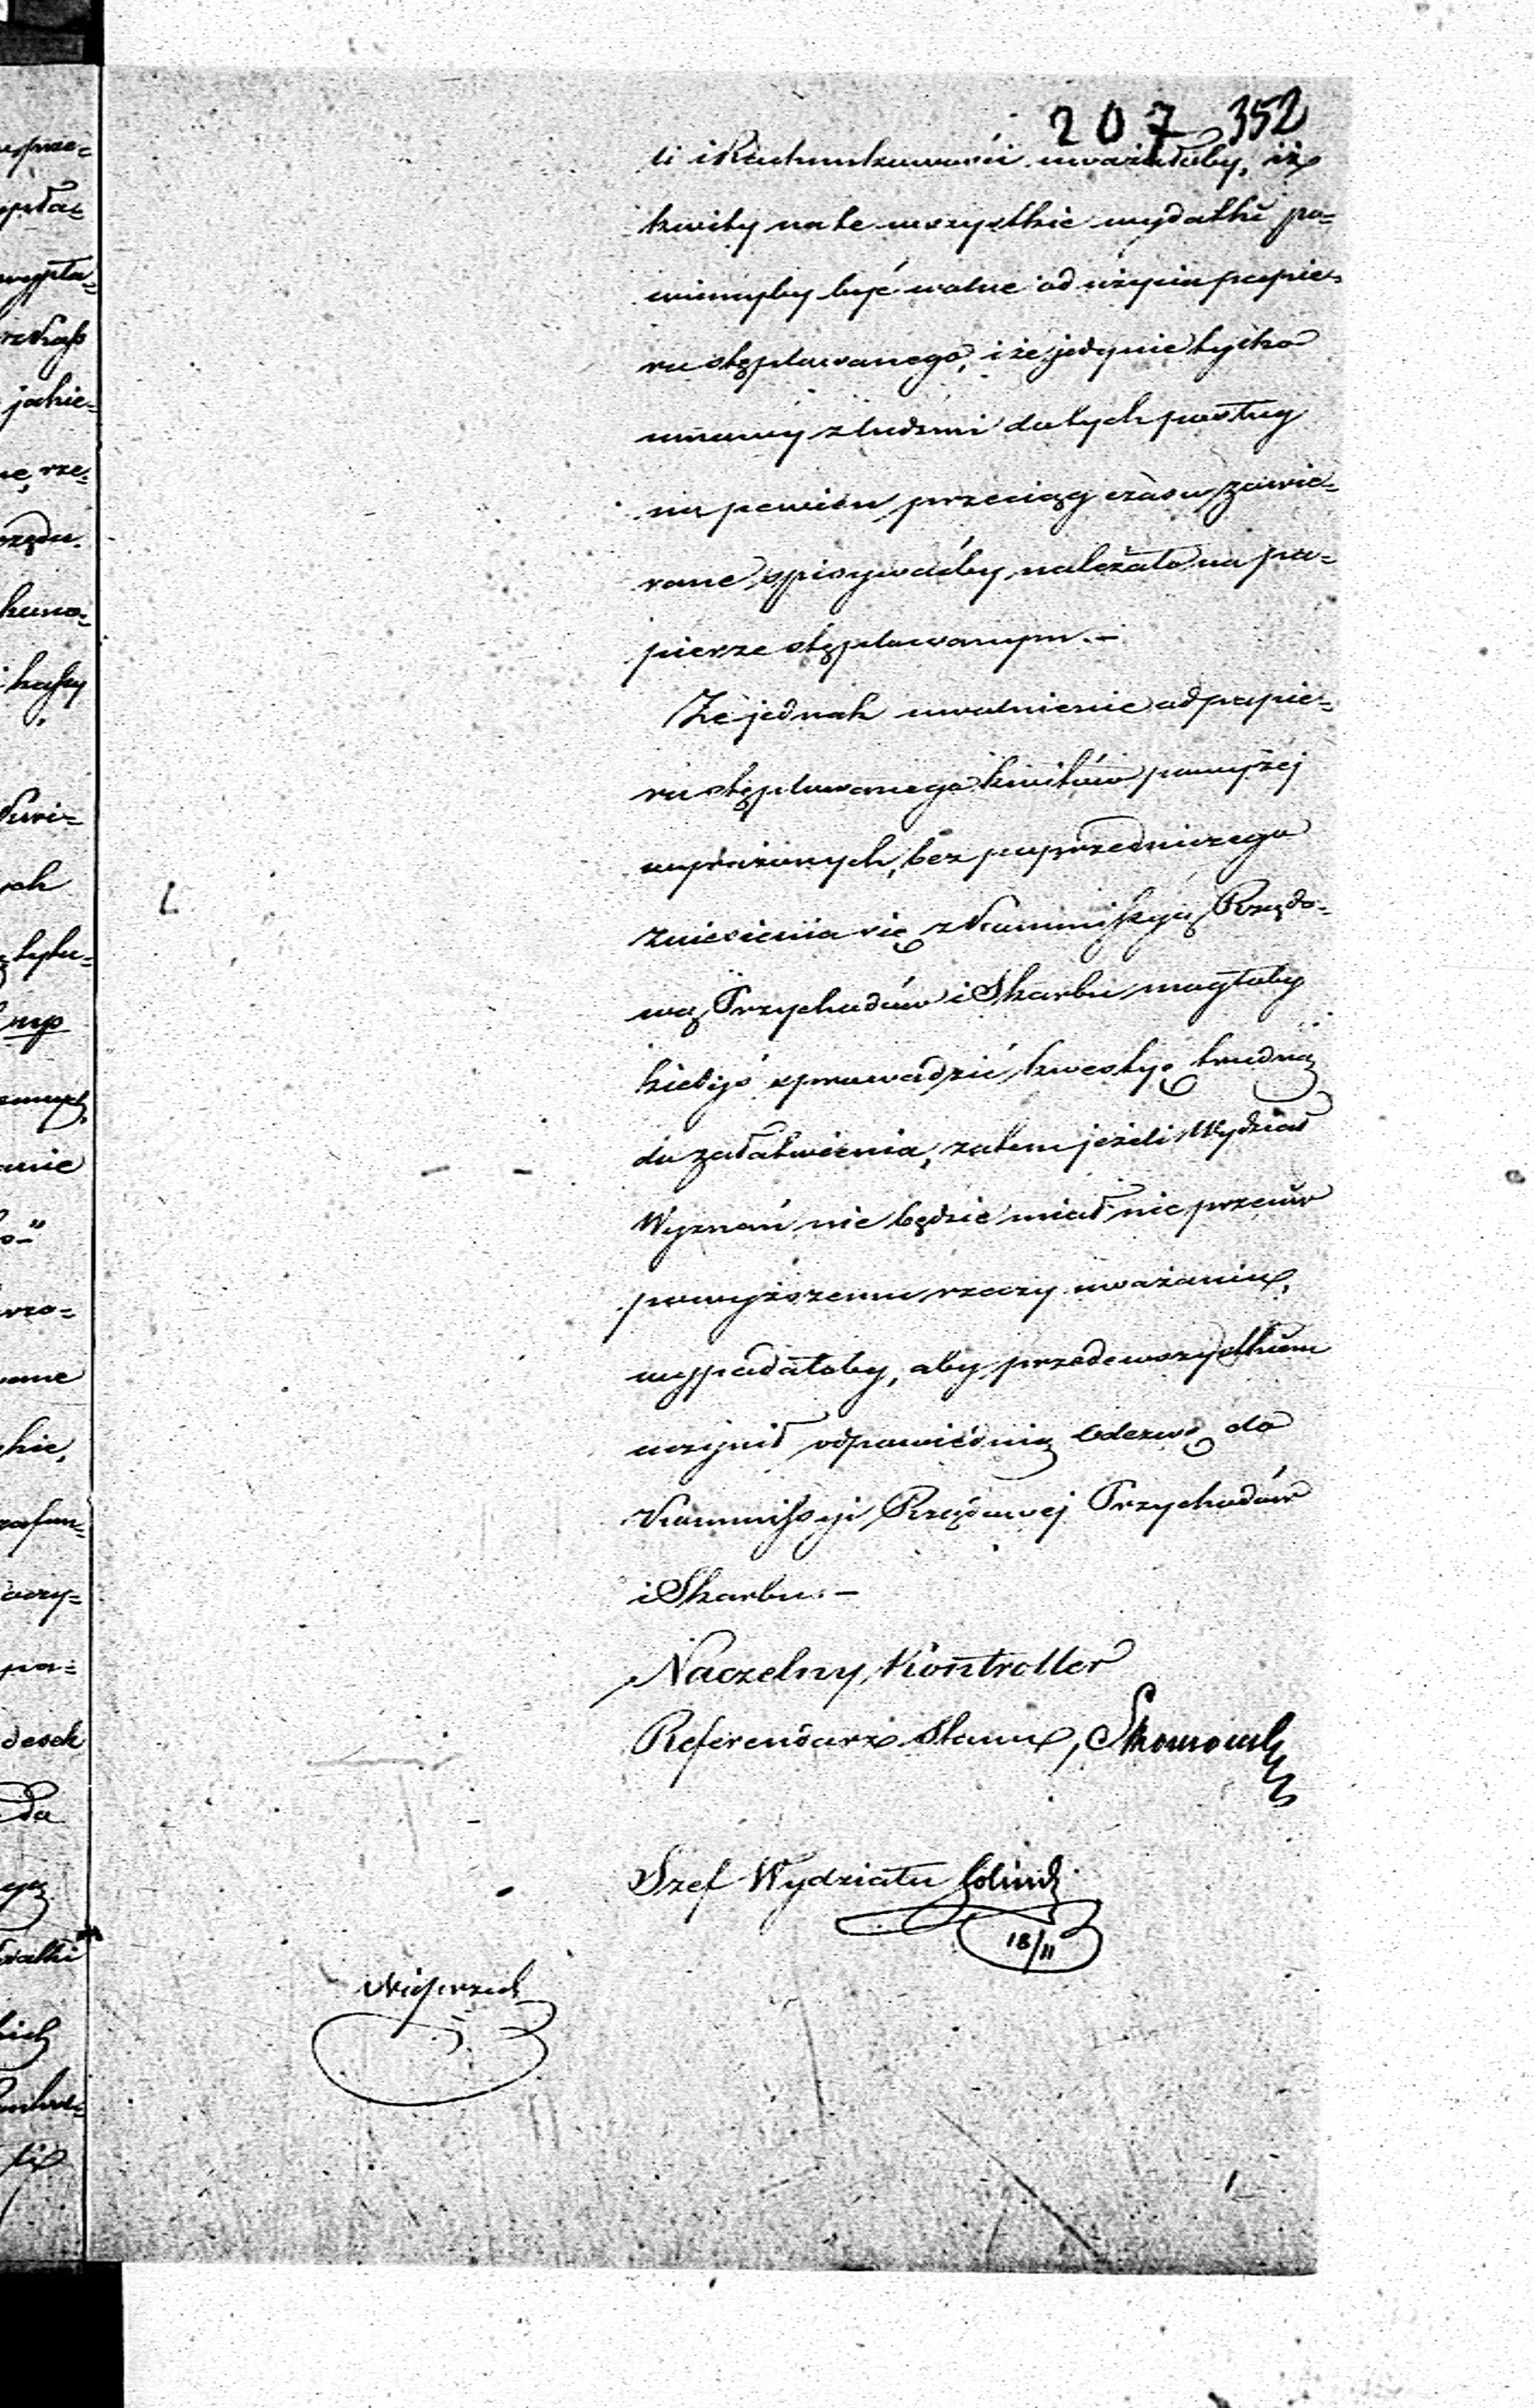 207 352
li i Rachunkowości uważałby, iż
kwity na te wszystkie wydatki po=
winnyby być wolne od użycia papie=
ru stęplowanego, i że jedynie tylko
umowy z ludźmi do tych posług
na pewien przeciąg czasu zawie=
rane, spisywaćby należało na pa=
pierze stęplowanym.—
Że jednak uwolnienie od papie=
ru stęplowanego kwitów powyżej
wyrażonych, bez poprzedniczego
zniesienia się z Kommissyą Rządo=
wą Przychodów i Skarbu mogłoby
kiedyś sprowadzić kwestyę trudną
do załatwienia, zatem jeżeli Wydział
Wyznań nie będzie miał nic przeciw
powyższemu rzeczy uważaniu,
wypadałoby, aby przedewszystkiem
uczynił odpowiednią Odezwę do
Kommissyi Rządowej Przychodów
i Skarbu.—
Naczelny Kontroller
Referendarz Stanu,
Szef Wydziału
18/11